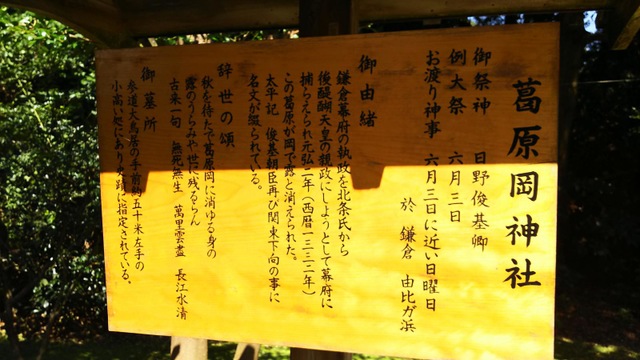 葛原岡神社
御祭神　日野俊基卿
例大祭　六月三日
お渡り神事　六月三日に近い日曜日
於　鎌倉　由比ガ浜
御由緒
鎌倉幕府の執政を北条氏から
後醍醐天皇の親政にしようとして幕府に
捕らえられ元弘二年（西暦一三三二年）
この葛原が岡で露と消えられた。
太平記　俊基朝臣再び関東下向の事に
名文が綴られている。
辞世の頌
秋を待たで葛原岡に消ゆる身の
露のうらみや世に残るらん
古来一句　無死無生　萬里雲盡　長江水清
御墓所
参道大鳥居の手前約五十米左手の
小高い処にあり史蹟に指定されている。